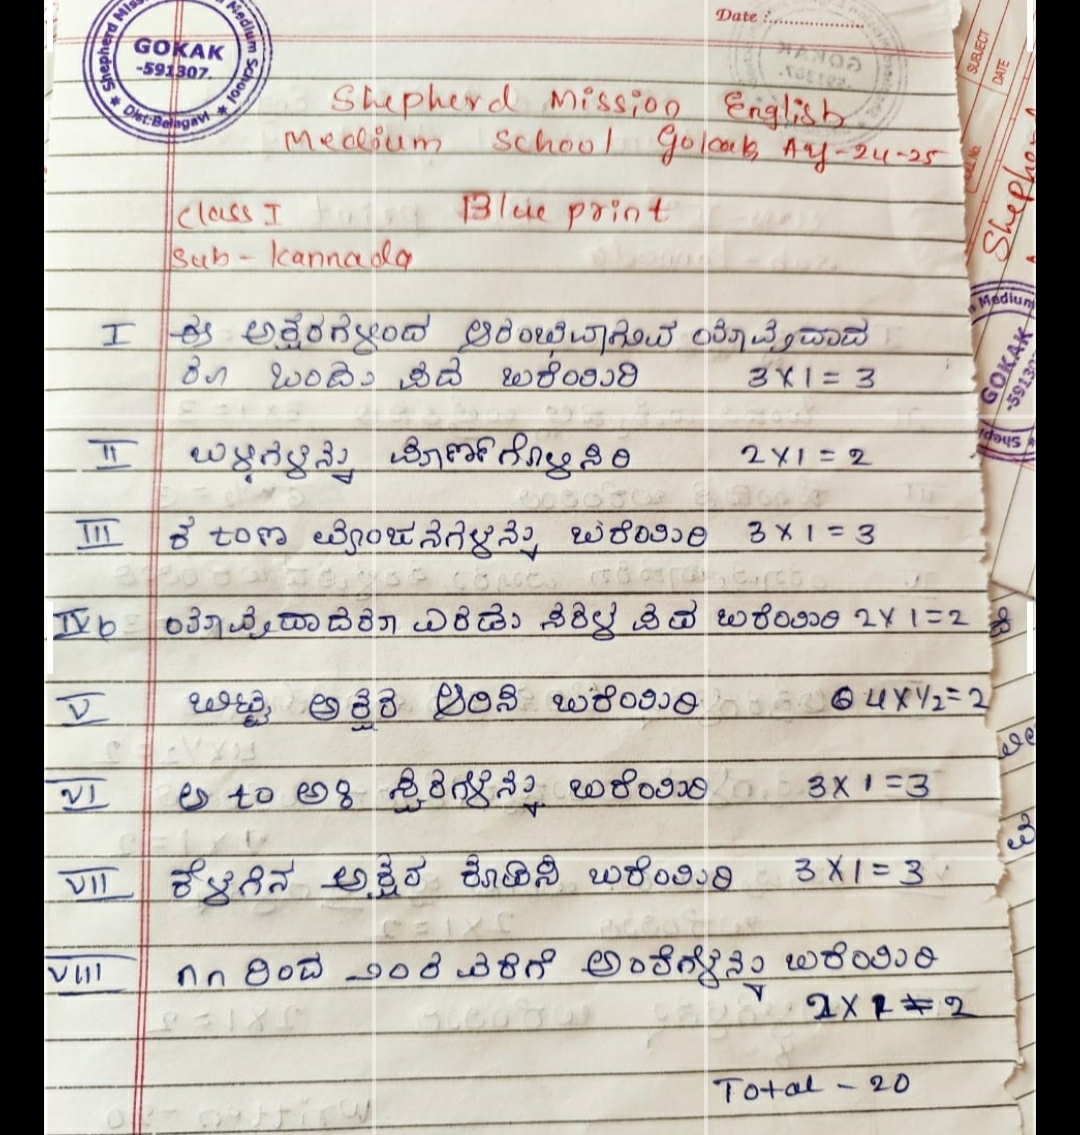 GOKAK
-591307.
Dist:Belagavi
Date :
Shepherd Mission English
Medium School Gokak AY-24-25
Class I Blue print
Sub - Kannada
I ಈ ಅಕ್ಷರಗಳಿಂದ ಆರಂಭವಾಗುವ ಯಾವುದಾದ
ರೂ ಒಂದು ಪದ ಬರೆಯಿರಿ 3 X 1 = 3
II ಬಳ್ಳಿಗಳನ್ನು ಪೂರ್ಣಗೊಳಿಸಿರಿ 2 X 1 = 2
III ಕ to ಣ ವ್ಯಂಜನಗಳನ್ನು ಬರೆಯಿರಿ 3 X 1 = 3
IV ಯಾವುದಾದರೂ ಎರಡು ಸರಳ ಪದ ಬರೆಯಿರಿ 2 X 1 = 2
V ಬಿಟ್ಟ ಅಕ್ಷರ ಆರಿಸಿ ಬರೆಯಿರಿ 4 X ½ = 2
VI ಅ to ಅಃ ಸ್ವರಗಳನ್ನು ಬರೆಯಿರಿ 3 X 1 = 3
VII ಕೆಳಗಿನ ಅಕ್ಷರ ಕೂಡಿಸಿ ಬರೆಯಿರಿ 3 X 1 = 3
VIII ೧೧ ರಿಂದ ೨೦ರ ವರೆಗೆ ಅಂಕಿಗಳನ್ನು ಬರೆಯಿರಿ
2 X 1 = 2
Total - 20
SUBJECT
DATE
GOKAK